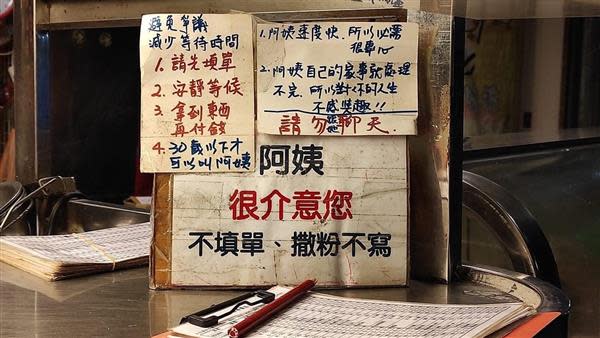 避免爭議
減少等待時間
1. 請先填單
2. 安靜等候
3. 拿到東西
再付錢
4. 30歲以下才
可以叫阿姨
1. 阿姨速度快，所以必需
很專心
2. 阿姨自己的家事就處理
不完，所以對你的人生
不感興趣!!
請勿聊天.
阿姨
很介意您
不填單、撒粉不寫